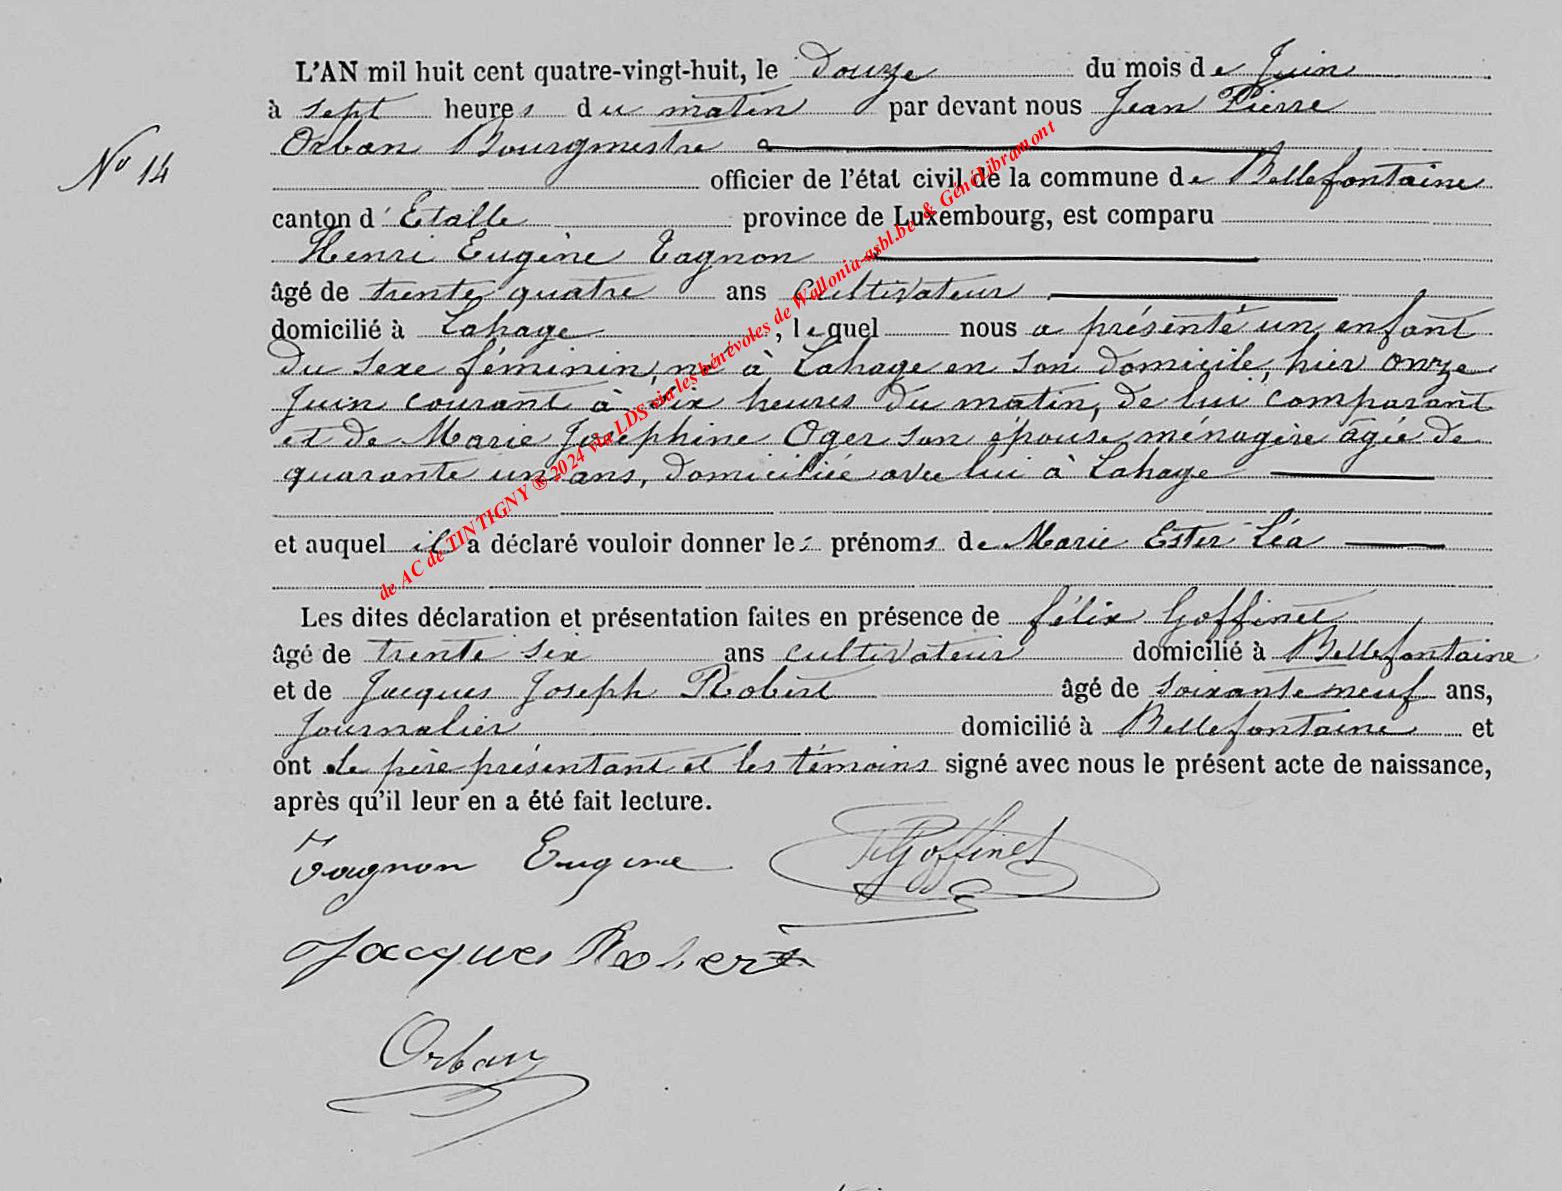 L'AN mil huit cent quatre-vingt-huit, le douze du mois de Juin
à sept heures du matin par devant nous Jean Pierre
Orban Bourgmestre
N° 14
officier de l'état civil de la commune de Bellefontaine
canton d'Etalle province de Luxembourg, est comparu
Henri Eugène Tagnon
âgé de trente quatre ans cultivateur
domicilié à Lahage, lequel nous a présenté un enfant
du sexe féminin, né à Lahage en son domicile, hier onze
Juin courant à six heures du matin, de lui comparant
et de Marie Joséphine Oger son épouse ménagère agée de
quarante un ans, domiciliée avec lui à Lahage
et auquel il a déclaré vouloir donner les prénoms de Marie Ester Léa
Les dites déclaration et présentation faites en présence de félix Goffinet
âgé de trente six ans cultivateur domicilié à Bellefontaine
et de Jacques Joseph Robert âgé de soixante neuf ans,
Journalier domicilié à Bellefontaine et
ont le père présentant et les témoins signé avec nous le présent acte de naissance,
après qu'il leur en a été fait lecture.
Tagnon Eugene F Goffinet
Jacques Robert
Orban
de AC de TINTIGNY ® 2024 via LDS via les bénévoles de Wallonia-asbl.be & GénéLibramont